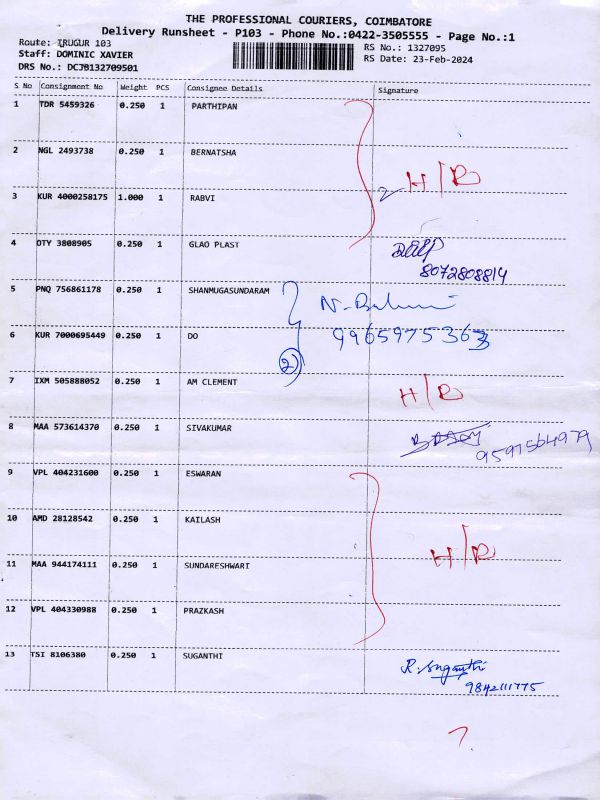 THE PROFESSIONAL COURIERS, COIMBATORE
Delivery Runsheet - P103 - Phone No.:0422-3505555 - Page No.:1
Route: IRUGUR 103 RS No.: 1327095
Staff: DOMINIC XAVIER RS Date: 23-Feb-2024
DRS No.: DCJB132709501
S No Consignment No Weight PCS Consignee Details Signature
1 TDR 5459326 0.250 1 PARTHIPAN
2 NGL 2493738 0.250 1 BERNATSHA
H/R
3 KUR 4000258175 1.000 1 RABVI
4 OTY 3808905 0.250 1 GLAO PLAST
8072808814
5 PNQ 756861178 0.250 1 SHANMUGASUNDARAM
6 KUR 7000695449 0.250 1 DO 9965975363
2
7 IXM 505888052 0.250 1 AM CLEMENT H/R
8 MAA 573614370 0.250 1 SIVAKUMAR
9597564979
9 VPL 404231600 0.250 1 ESWARAN
10 AMD 28128542 0.250 1 KAILASH
H/R
11 MAA 944174111 0.250 1 SUNDARESHWARI
12 VPL 404330988 0.250 1 PRAZKASH
13 TSI 8106380 0.250 1 SUGANTHI R. Suganthi
9842111775
7.